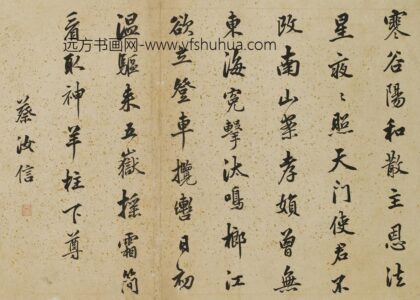 远方书画网-www.yfshuhua.com
寒谷陽和散主恩法
星夜〻照天门使君不
改南山案孝媍曾無
東海冤擊汰鳴榔江
欲立登車攬轡日初
温驅来五嶽霜简
看取神羊柱下尊
蔡汝信